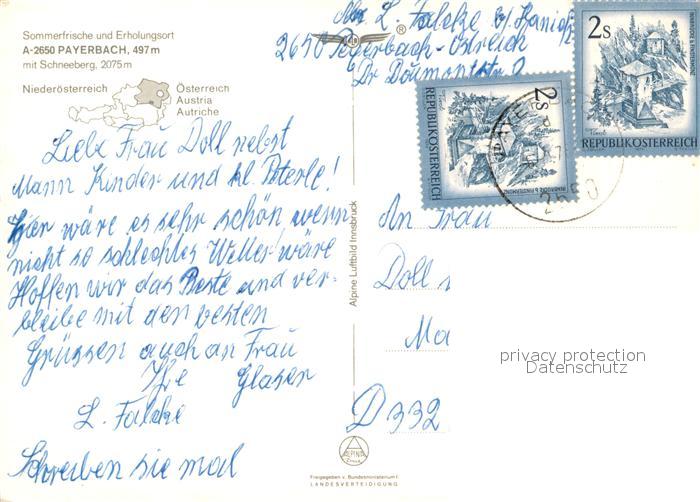 Sommerfrische und Erholungsort
A-2650 PAYERBACH, 497 m
mit Schneeberg, 2075 m
Niederösterreich
Österreich
Austria
Autriche
Liebe Frau Doll nebst
Mann Kinder und kl. Peterle!
Hier wäre es sehr schön, wenn
nicht so schlechtes Wetter wäre
Hoffen wir das Beste und ver-
bleibe mit den besten
Grüssen auch an Frau
Ihre Glaser
L. Falcke
Schreiben sie mal
Alpine Luftbild Innsbruck
L. Falcke
2650 Payerbach-Östreich
Dr
®
2s
REPUBLIK ÖSTERREICH
2s
REPUBLIK ÖSTERREICH
An Frau
Doll
Ma
D 332
privacy protection
Datenschutz
ALPINE
Freigegeben v. Bundesministerium f.
LANDESVERTEIDIGUNG